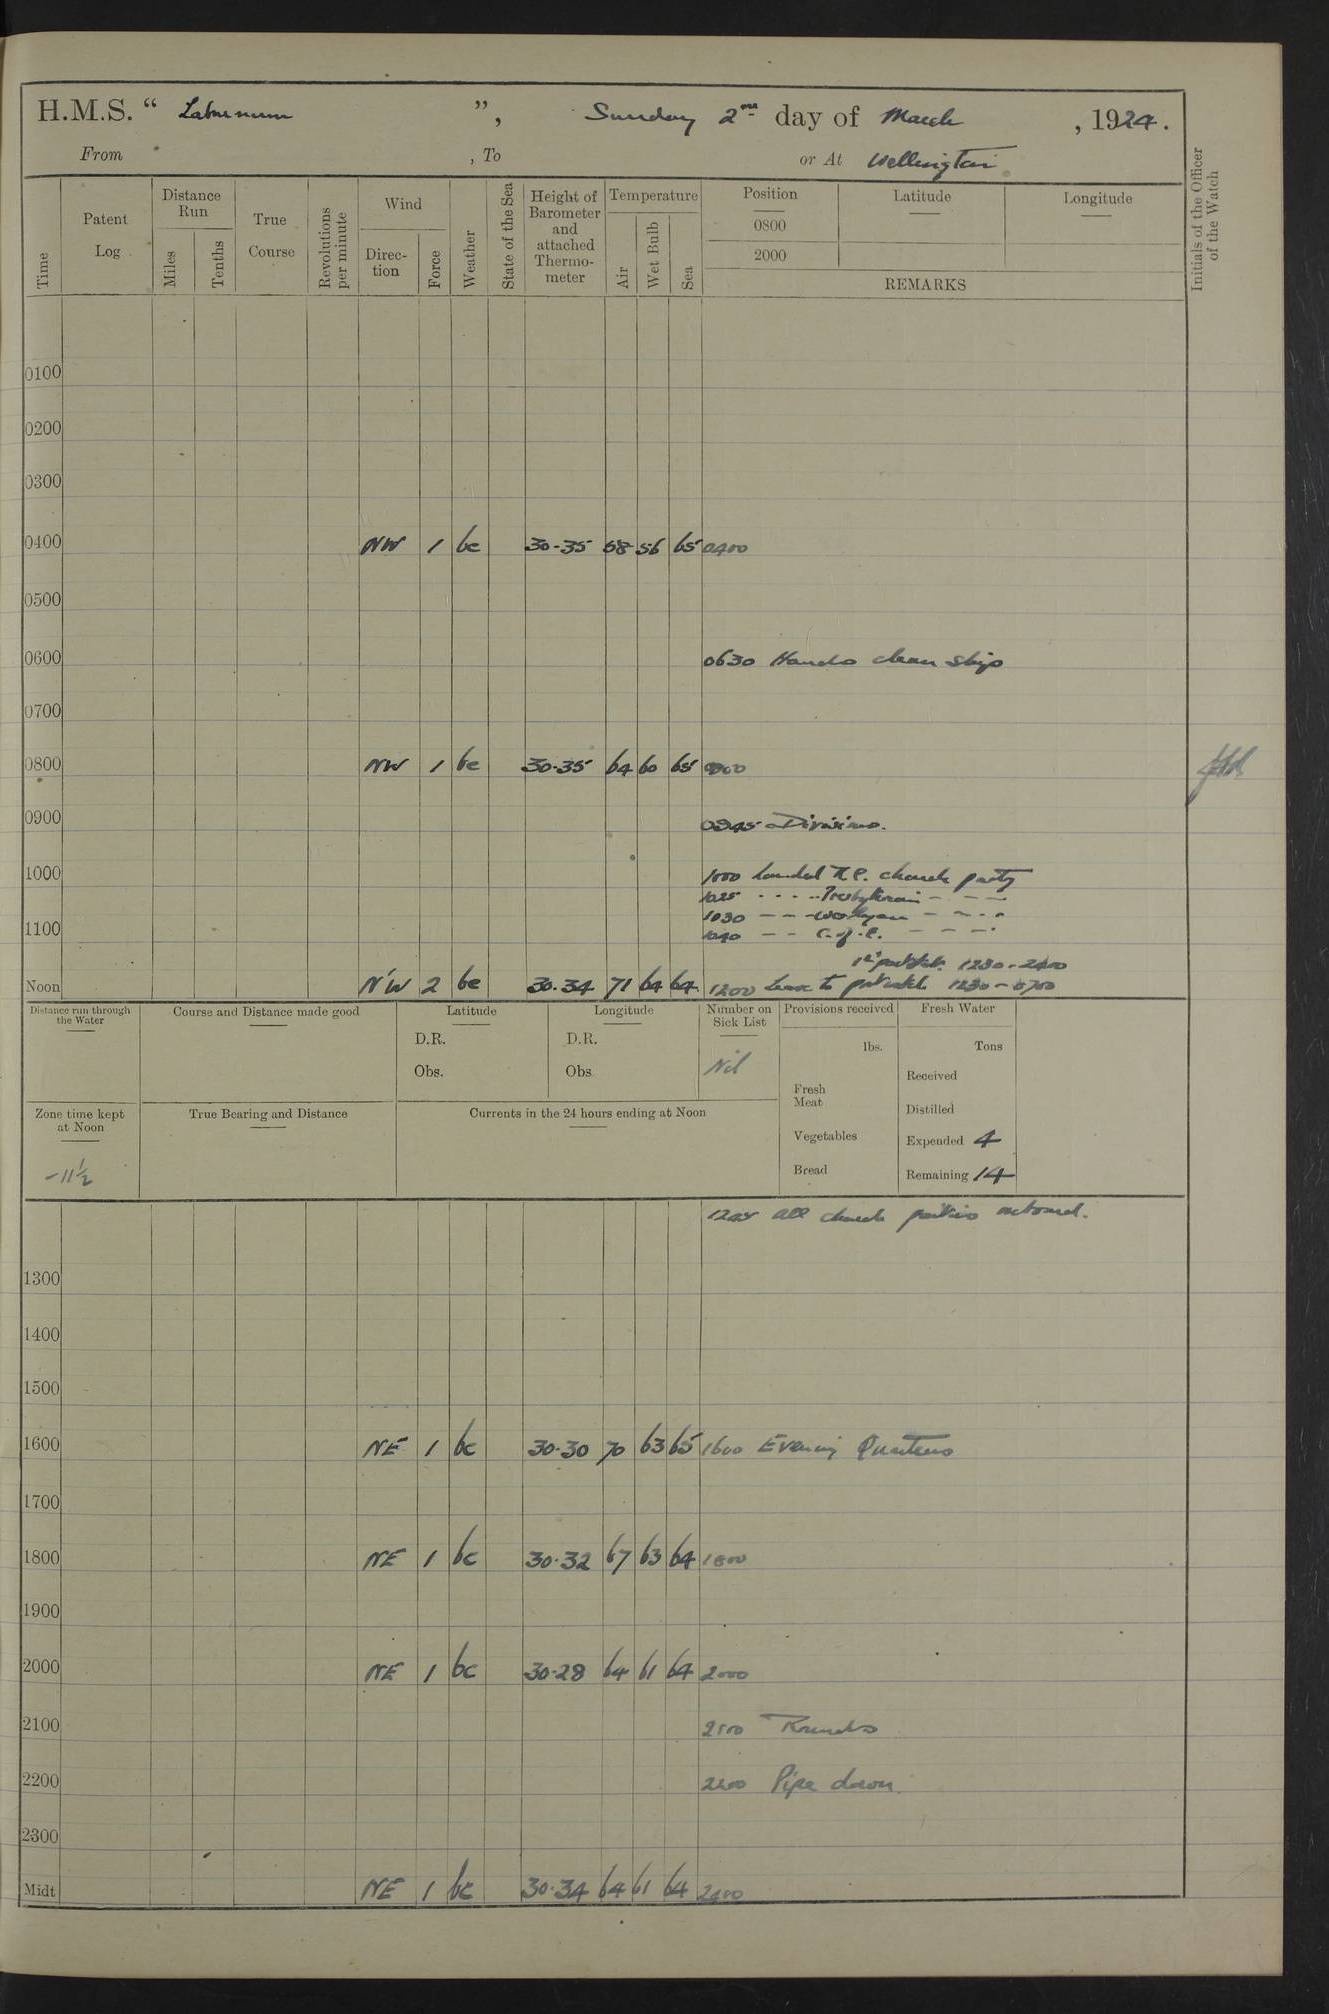 H.M.S. " Laburnum ", Sunday 2nd day of March , 1924.
From , To or At Wellington
Time
Patent Log
Distance Run
Miles
Tenths
True Course
Revolutions per minute
Wind
Direc-tion
Force
Weather
State of the Sea
Height of Barometer and attached Thermo-meter
Temperature
Air
Wet Bulb
Sea
Position
0800
2000
Latitude
Longitude
REMARKS
Initials of the Officer of the Watch
0100
0200
0300
0400 NW 1 bc 30.35 58 56 65 0400
0500
0600 0630 Hands clean ship
0700
0800 NW 1 bc 30.35 64 60 65 0800
0900 0945 Divisions.
1000 1000 Landed R.C. church party
1025 - - - - Presbyterian - - -
1030 - - - Wesleyan - - - -
1100 1040 - - C. of E. - - - -
1st part 1230 - 2400
Noon NW 2 bc 30.34 71 64 64 1200 Leave to part watch 1230 - 0700
Distance run through the Water
Course and Distance made good
Latitude
D.R.
Obs.
Longitude
D.R.
Obs
Number on Sick List
Nil
Provisions received
lbs.
Fresh Meat
Vegetables
Bread
Fresh Water
Tons
Received
Distilled
Expended 4
Remaining 14
Zone time kept at Noon
-11½
True Bearing and Distance
Currents in the 24 hours ending at Noon
1245 All church parties onboard.
1300
1400
1500
1600 NE 1 bc 30.30 70 63 65 1600 Evening Quarters
1700
1800 NE 1 bc 30.32 67 63 64 1800
1900
2000 NE 1 bc 30.28 64 61 64 2000
2100 2100 Rounds
2200 2200 Pipe down.
2300
Midt NE 1 bc 30.34 64 61 64 2400